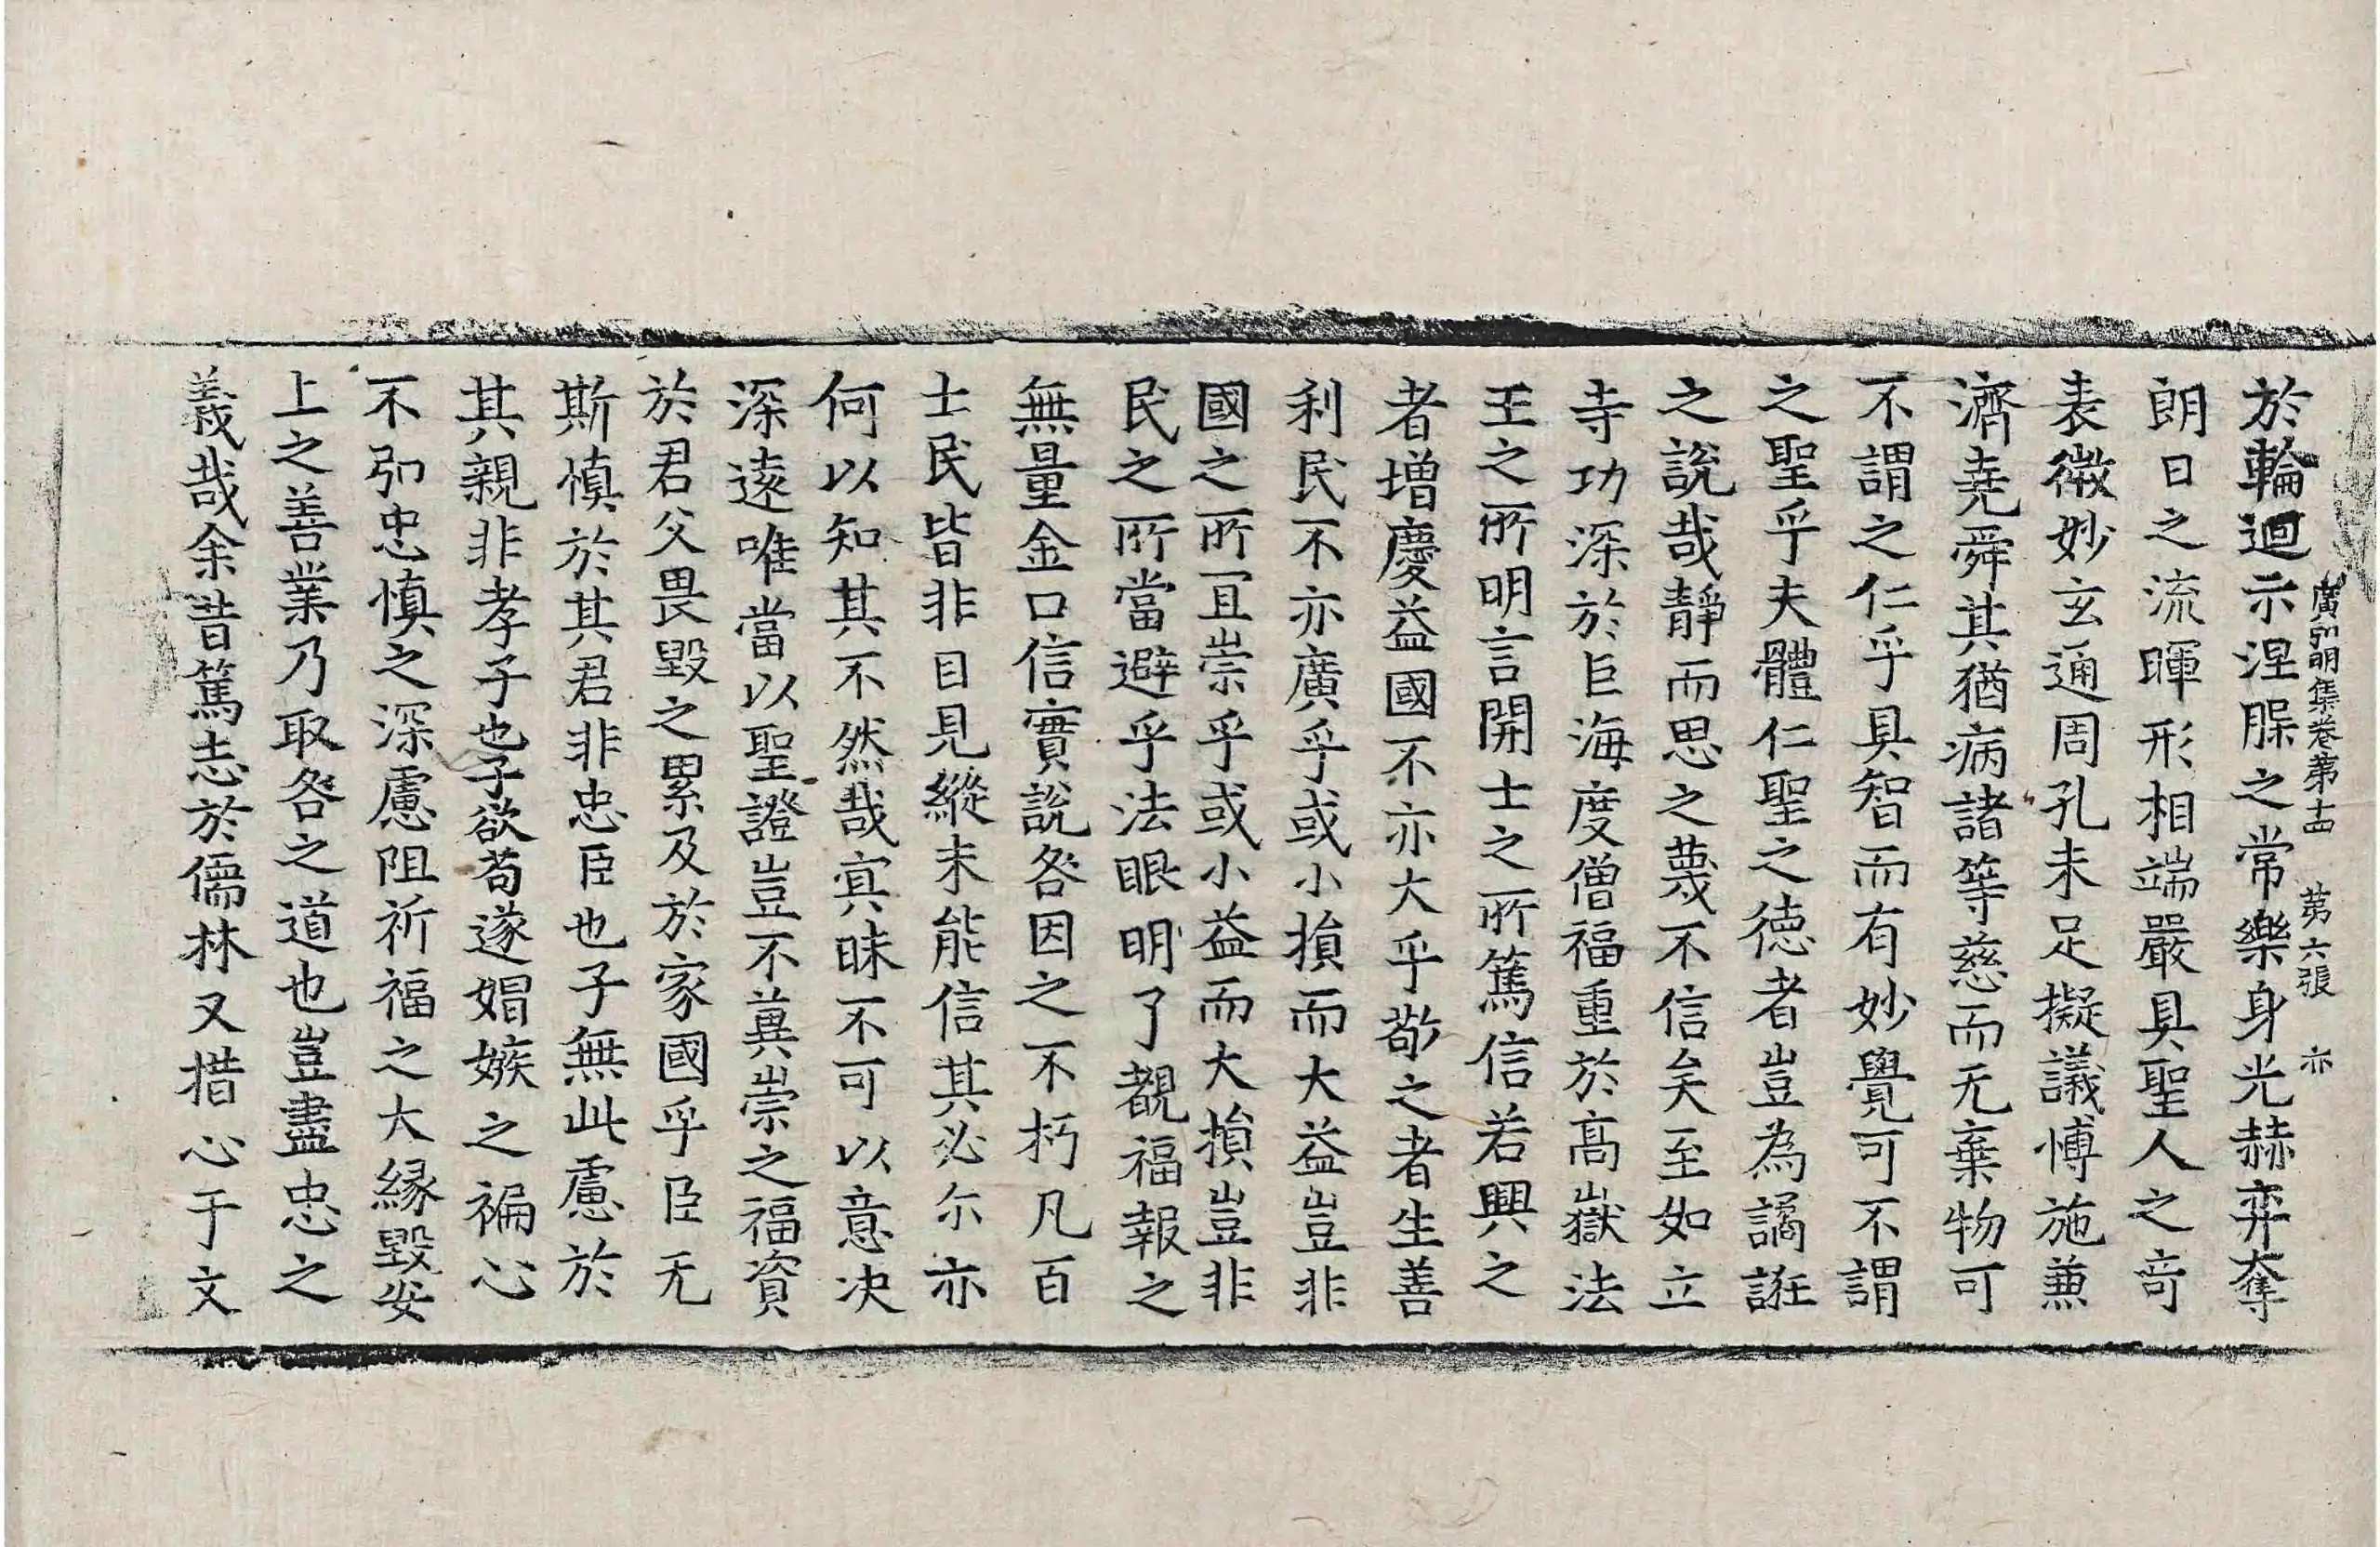 廣弘明集卷第十四 第六張 亦
於輪迴示涅脲之常樂身光赫弈奪
朗日之流暉形相端嚴具聖人之竒
表微妙玄通周孔未足擬議博施兼
濟堯舜其猶病諸等慈而无棄物可
不謂之仁乎具智而有妙覺可不謂
之聖乎夫體仁聖之德者豈為譎誑
之說哉靜而思之蔑不信矣至如立
寺功深於巨海度僧福重於髙嶽法
王之所明言開士之所篤信若興之
者增慶益國不亦大乎敬之者生善
利民不亦廣乎或小損而大益豈非
國之所宜崇乎或小益而大損豈非
民之所當避乎法眼明了覩福報之
無量金口信實說咎因之不朽凡百
士民皆非目見縱未能信其必尓亦
何以知其不然哉寘昧不可以意决
深遠唯當以聖證豈不兾崇之福資
於君父畏毀之累及於家國乎臣无
斯慎於其君非忠臣也子無此慮於
其親非孝子也子欲苟遂媢嫉之褊心
不弘忠慎之深慮阻祈福之大縁毀安
上之善業乃取咎之道也豈盡忠之
義哉余昔篤志於儒林又措心于文